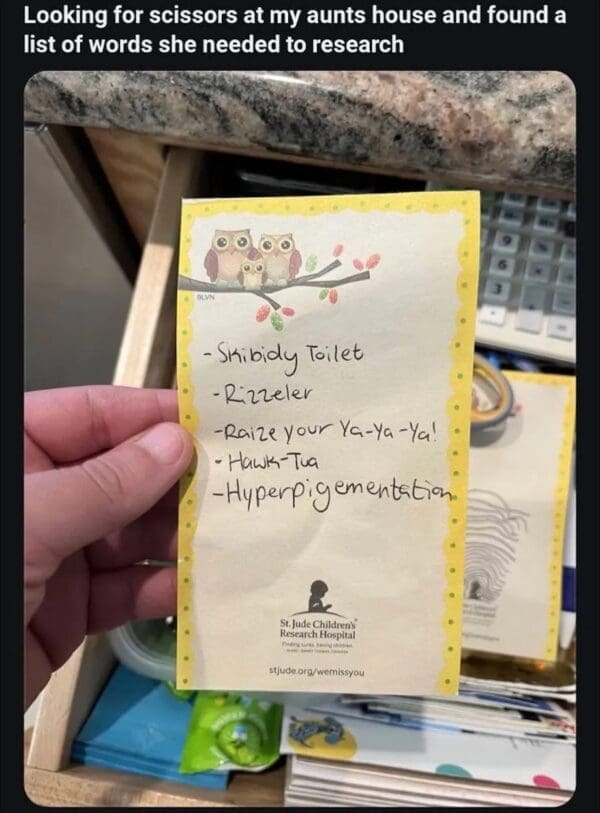 Looking for scissors at my aunts house and found a
list of words she needed to research
BLVN
- Skibidy Toilet
- Rizzeler
- Raize your Ya-Ya-Ya!
- Hawk-Tua
- Hyperpigementation
St. Jude Children's
Research Hospital
Finding cures. Saving children.
stjude.org/wemissyou
9
6
3